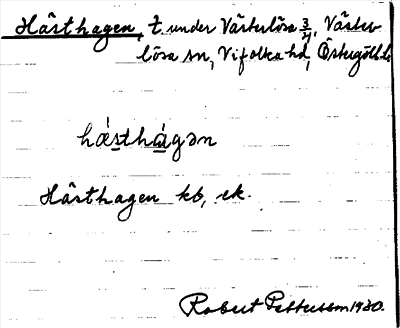 Härsthagen, t. under Västerlösa 3/4, Väster
lösa sn, Vifolka hd, Östergötl. l.
hǽsthágən
Härsthagen kb, ek.
Robert Pettersson 1930.